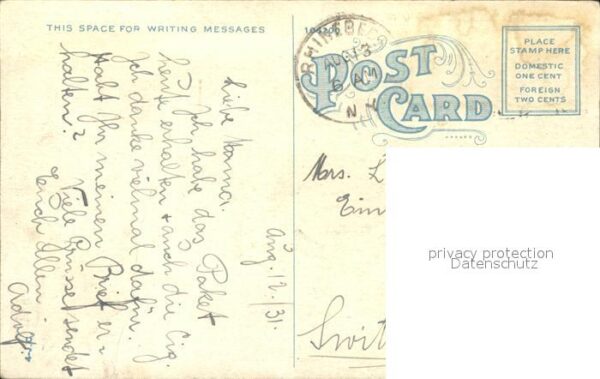 THIS SPACE FOR WRITING MESSAGES
Aug. 12./31.
Liebe Mama.
Ich habe das Paket
heute erhalten & auch die Cig.
Ich danke vielmal dafür.
Habt Ihr meinen Brief er-
halten?
Viele Grüsse sendet
Euch Allen
Adolf
RHINEBECK
AUG 13
6 AM
N.Y.
POST CARD
PLACE
STAMP HERE
DOMESTIC
ONE CENT
FOREIGN
TWO CENTS
Mrs. L
Ein
Swit
privacy protection
Datenschutz